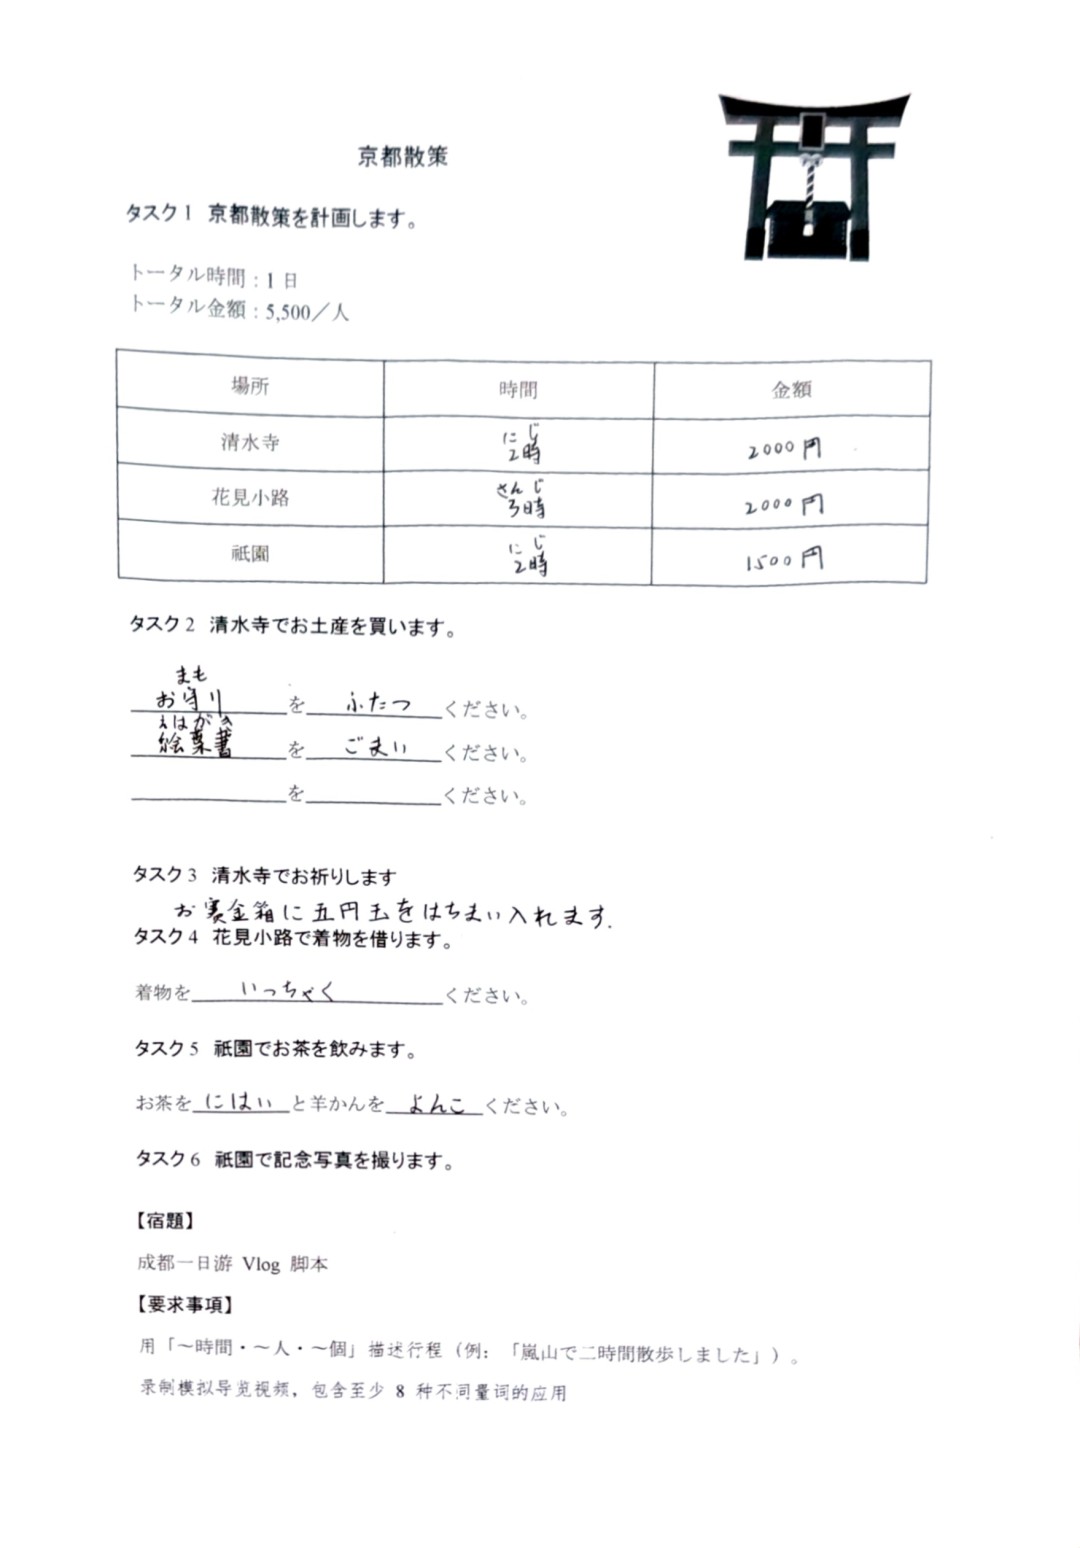 京都散策
タスク1 京都散策を計画します。
トータル時間：1 日
トータル金額：5,500／人
場所 時間 金額
にじ
清水寺 2時 2000円
さんじ
花見小路 3時 2000円
にじ
祇園 2時 1500円
タスク2 清水寺でお土産を買います。
まも
お守りを ふたつ ください。
えはがき
絵葉書を ごまい ください。
を ください。
タスク3 清水寺でお祈りします
お賽金箱に五円玉をはちまい入れます.
タスク4 花見小路で着物を借ります。
着物を いっちゃく ください。
タスク5 祇園でお茶を飲みます。
お茶を にはい と羊かんを よんこ ください。
タスク6 祇園で記念写真を撮ります。
【宿題】
成都一日游 Vlog 脚本
【要求事項】
用「～時間・～人・～個」描述行程（例：「嵐山で二時間散歩しました」）。
录制模拟导览视频，包含至少 8 种不同量词的应用